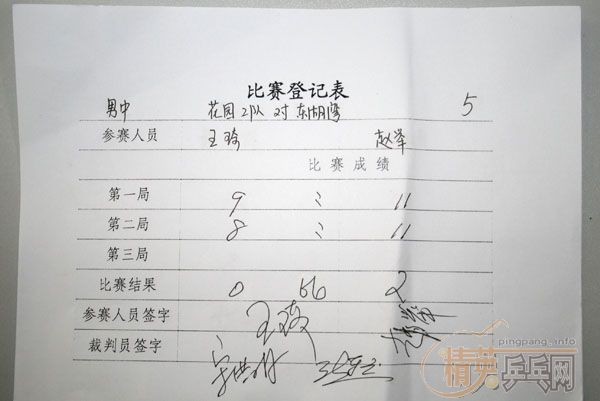 比赛登记表
男中 花园2队 对 东胡 5
参赛人员 王琦 赵泽
比赛成绩
第一局 9 : 11
第二局 8 : 11
第三局
比赛结果 0 比 2
参赛人员签字 王琦
裁判员签字
pingpang.info
精英乒乓网